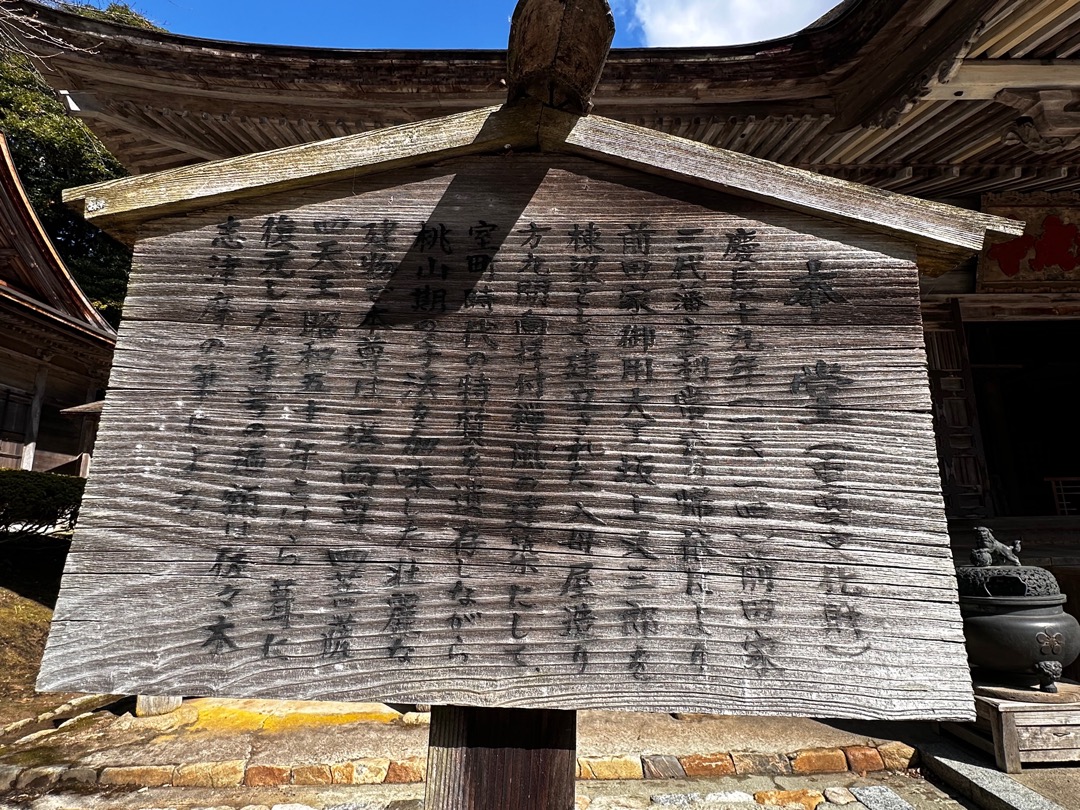 本堂（重要文化財）
慶長十九年（一六一四）前田家
三代藩主利常公の帰依により
前田家御用大工坂上又三郎を
棟梁として建立された入母屋造り
方九間向拝付禅風の建築にして、
室町時代の特質を遺存しながら
桃山期の手法を加味した壮麗な
建物で本尊は一塔両尊四菩薩
四天王昭和五十年こけら葺に
復元した寺号の扁額は佐々木
志津摩の筆による